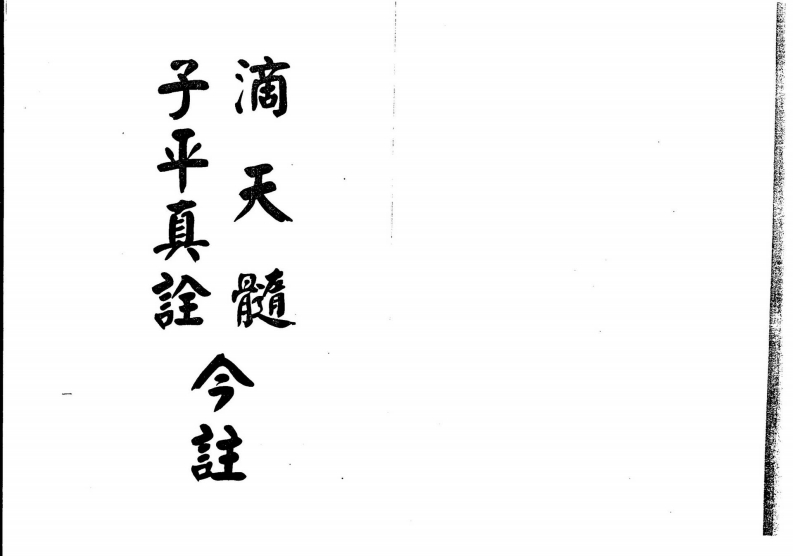 滴天髓
子平真詮
今註
一